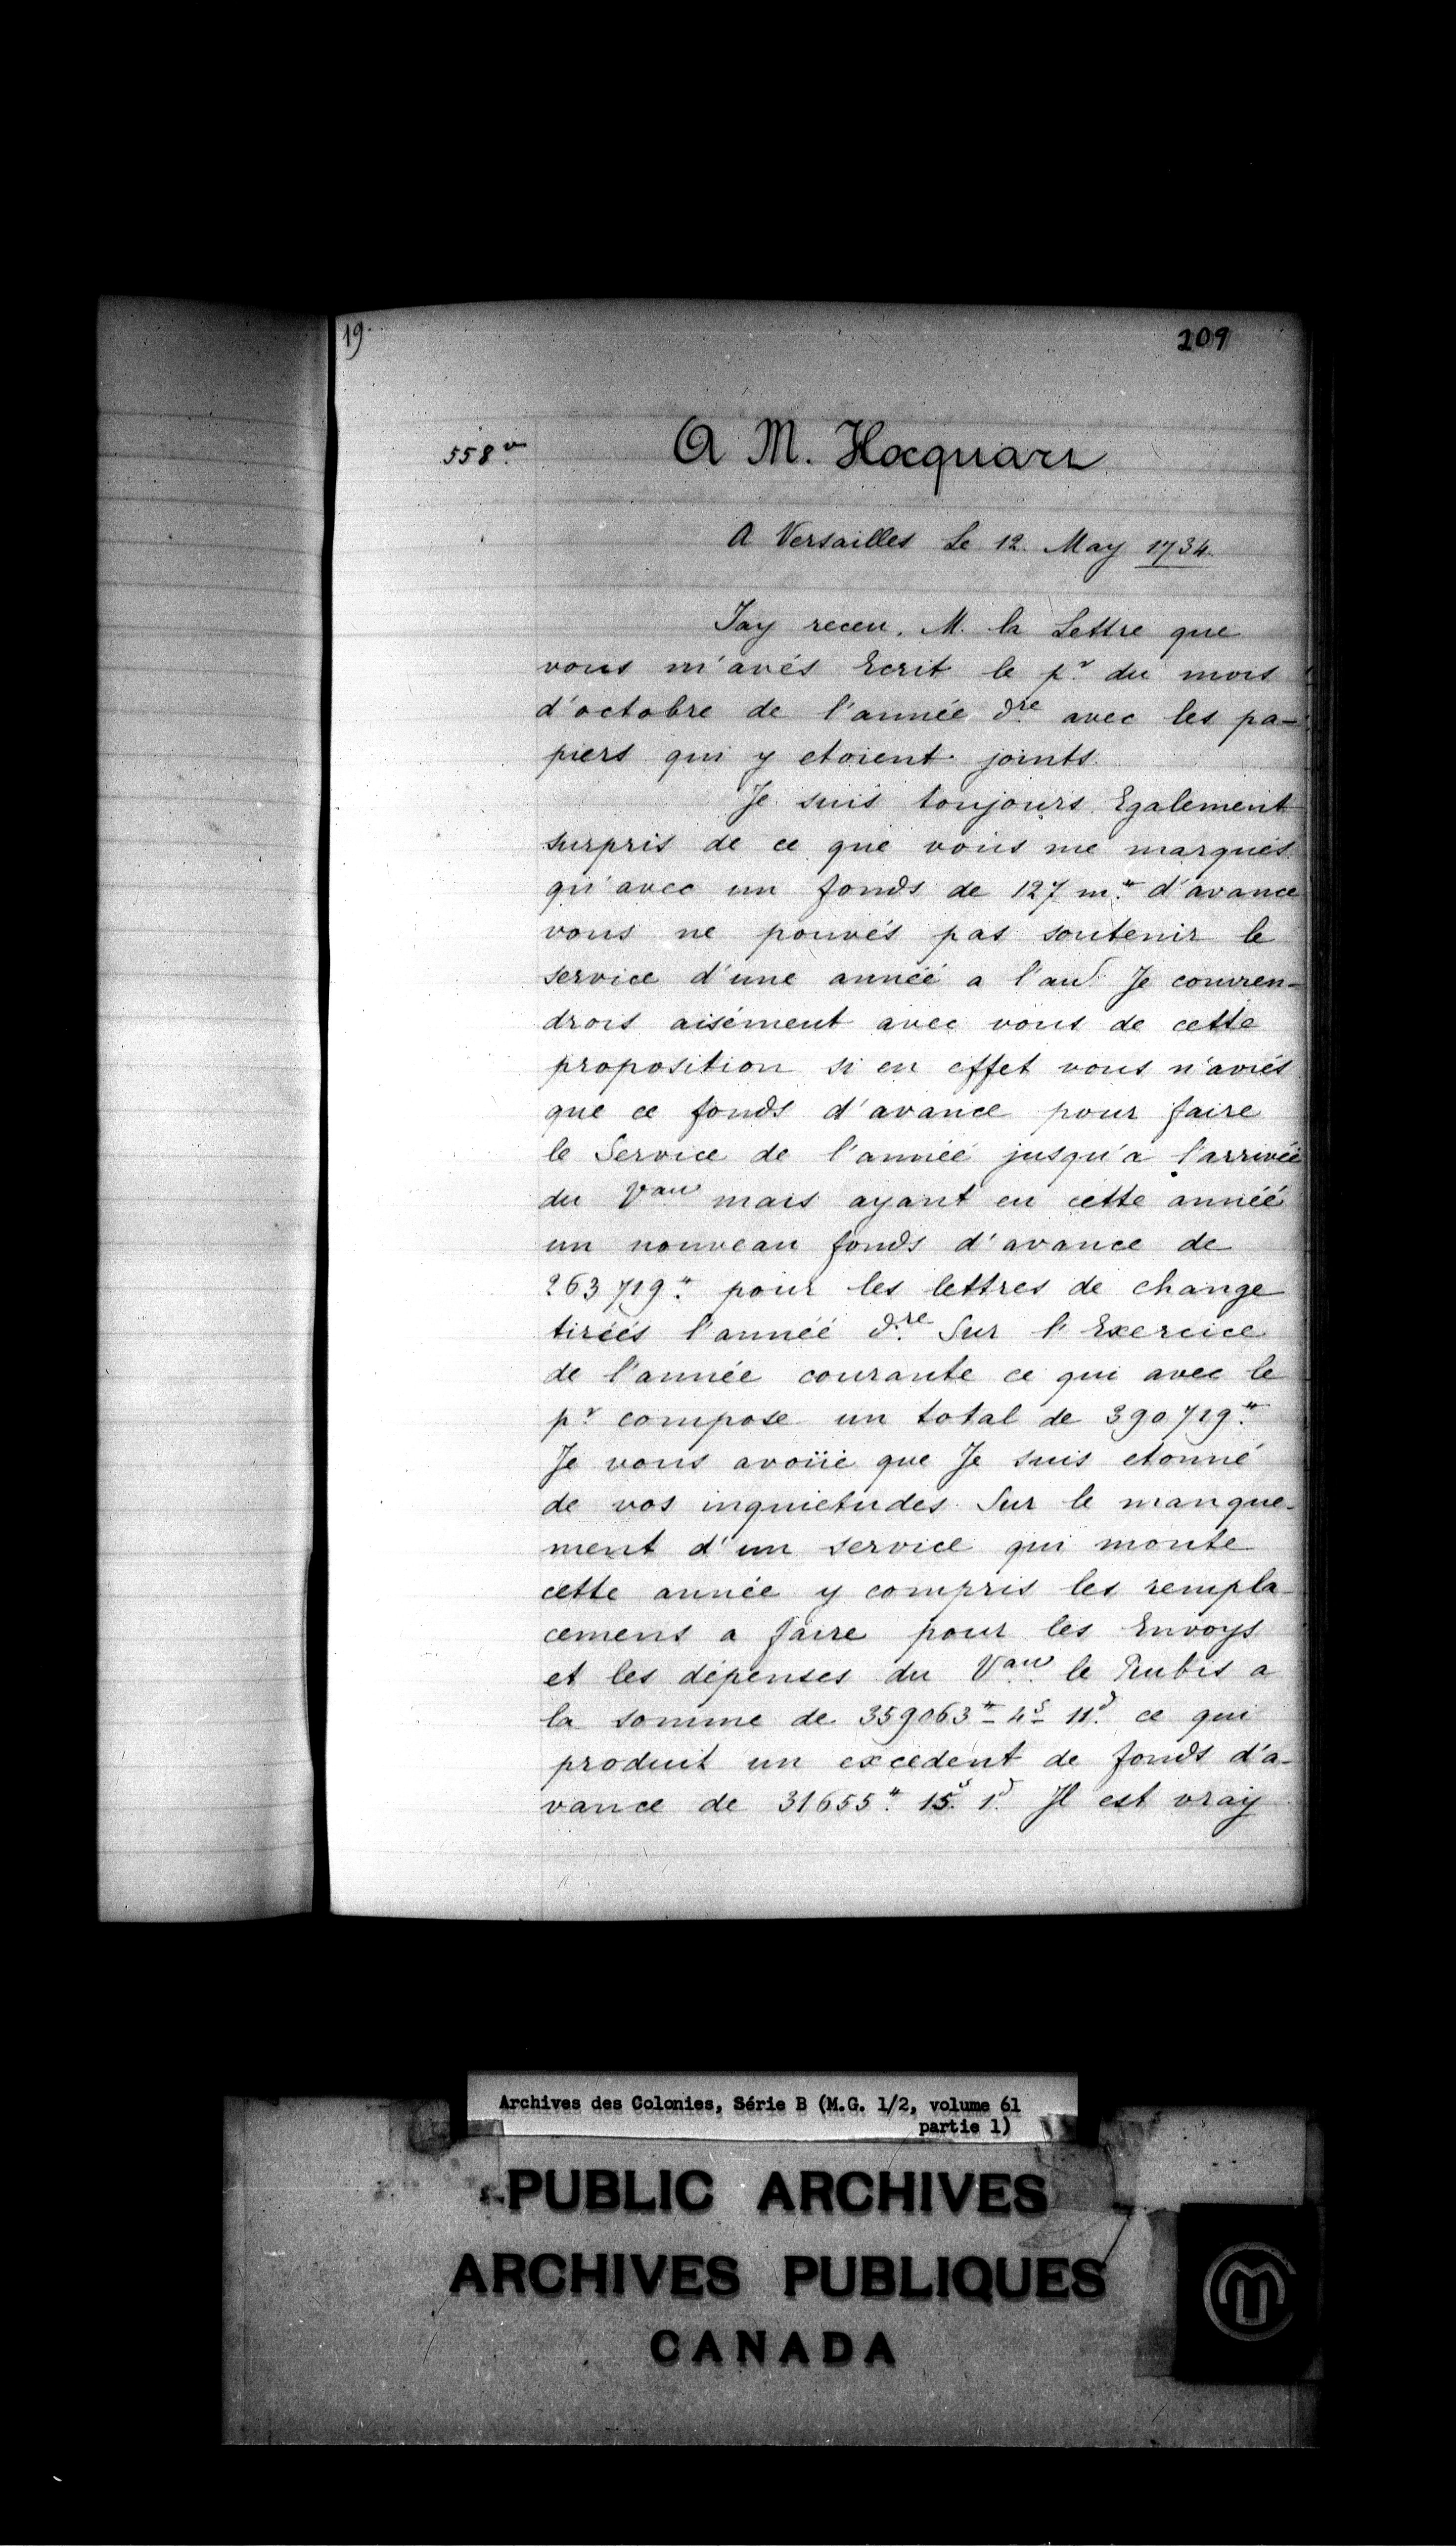 19.
209
558 v.
A M. Hocquart
A Versailles Le 12. May 1734.
Jay receu. M. la Lettre que
vous m'avés Ecrit le pr. du mois
d'octobre de l'année dre. avec les pa-
piers qui y etoient joints.
Je suis toujours Egalement
surpris de ce que vous me marqués
qu'avec un fonds de 127 m.# d'avance
vous ne pouvés pas soutenir le
service d'une année a l'aut. Je convien-
drois aisément avec vous de cette
proposition si en effet vous n'aviés
que ce fonds d'avance pour faire
le Service de l'année jusqu'a l'arrivée
du Vau mais ayant eu cette année
un nouveau fonds d'avance de
263719.# pour les lettres de change
tirées l'année dre. Sur l'Exercice
de l'année courante ce qui avec le
pr. compose un total de 390719.#
Je vous avoüe que Je suis etonné
de vos inquietudes Sur le manque-
ment d'un service qui monte
cette année y compris les rempla-
cemens a faire pour les Envoys
et les dépenses du Vau. le Rubis a
la somme de 359063# 4s 11d. ce qui
produit un excedent de fonds d'a-
vance de 31655.# 15s. 1d. Il est vray
Archives des Colonies, Série B (M.G. 1/2, volume 61
partie 1)
PUBLIC ARCHIVES
ARCHIVES PUBLIQUES
CANADA